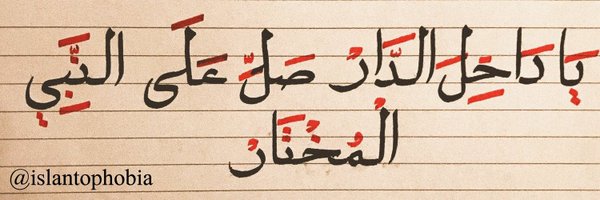 يَا دَاخِلَ الدَّارْ صَلِّ عَلَى النَّبِي
الْمُخْتَارْ
@islantophobia